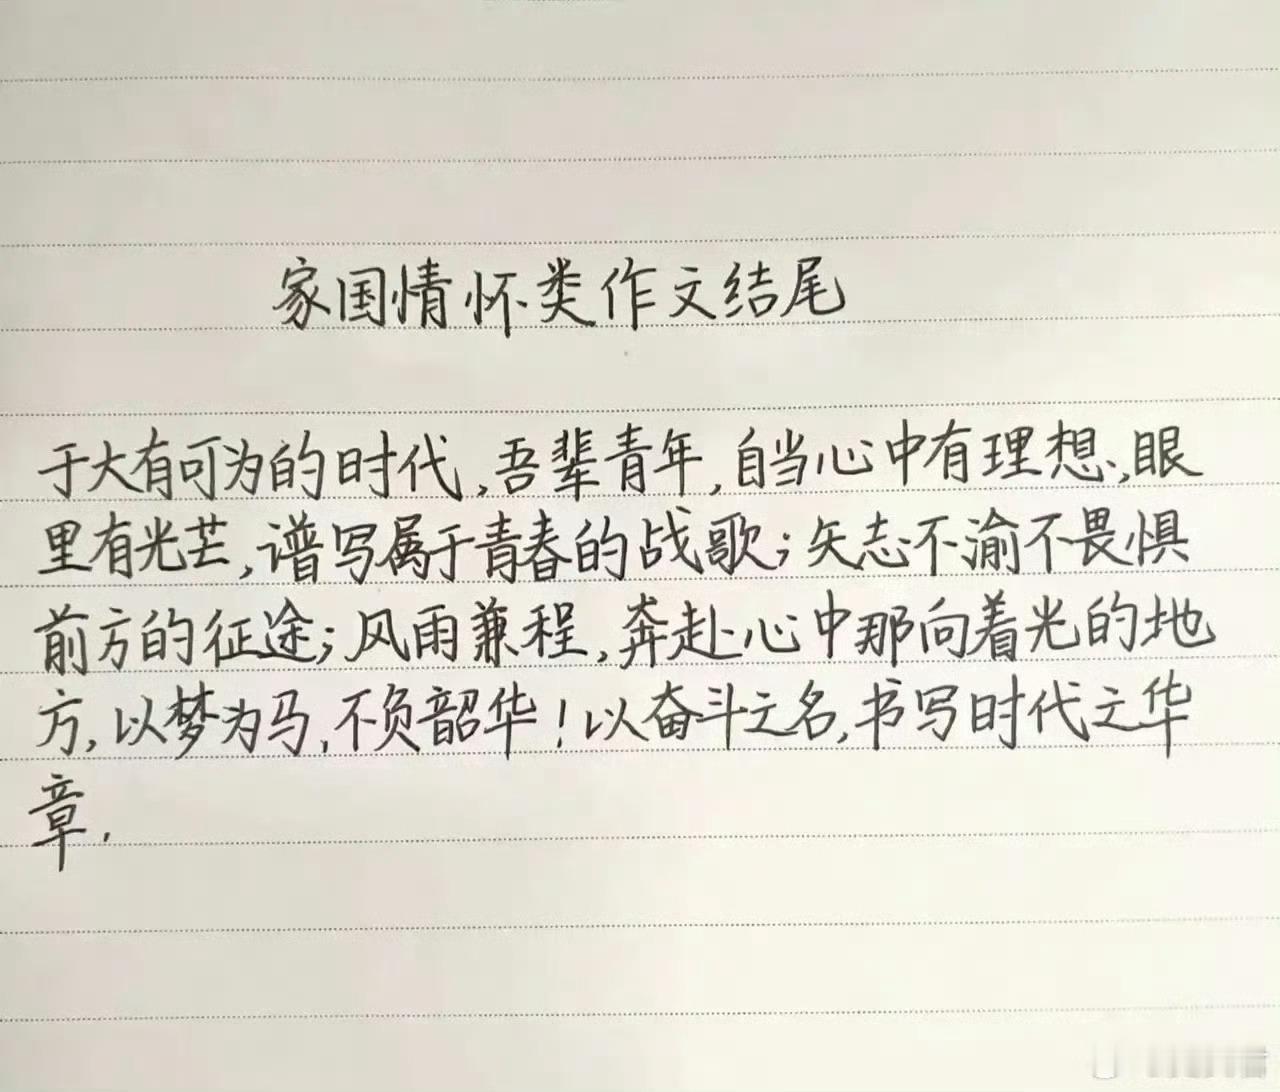 家国情怀类作文结尾
于大有可为的时代,吾辈青年,自当心中有理想,眼
里有光芒,谱写属于青春的战歌;矢志不渝不畏惧
前方的征途;风雨兼程,奔赴心中那向着光的地
方,以梦为马,不负韶华!以奋斗之名,书写时代之华
章.